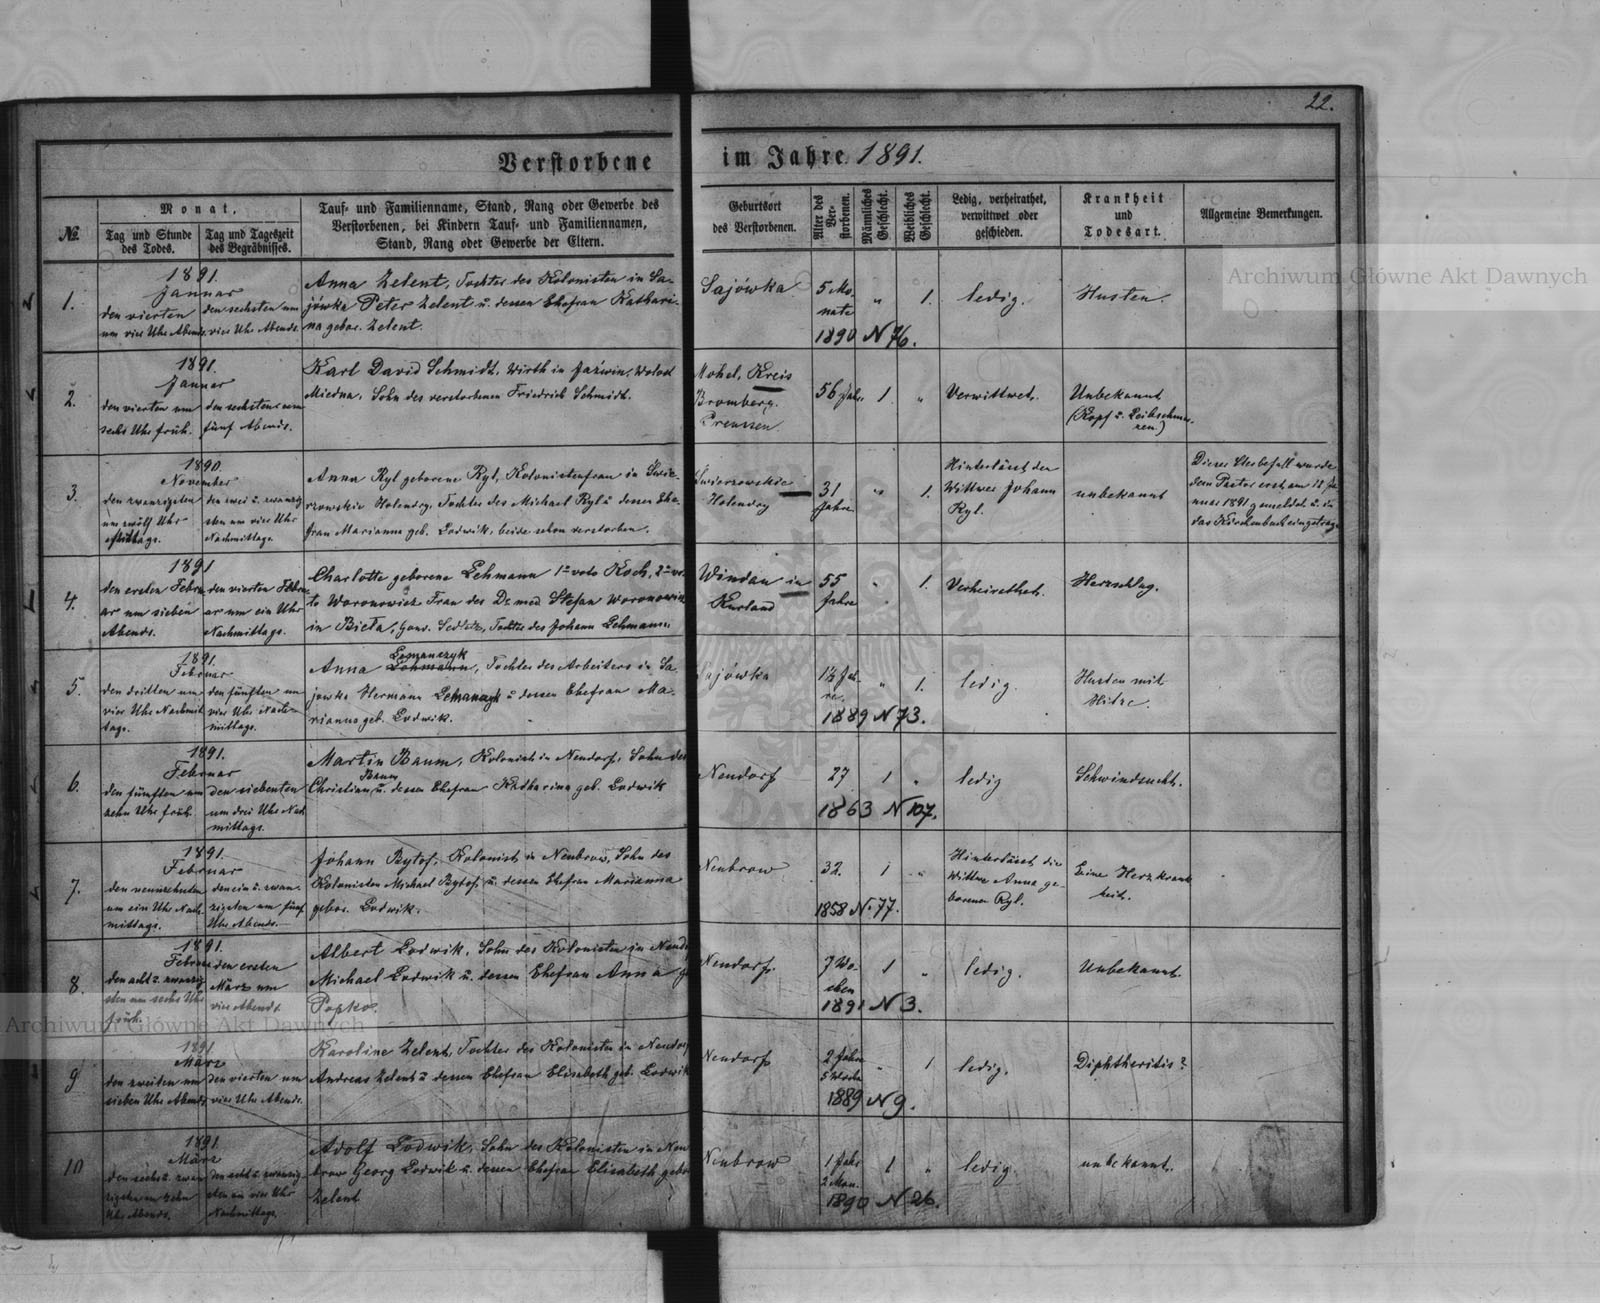 22.
Verstorbene im Jahre 1891.
№.
Monat.
Tag und Stunde des Todes.
Tag und Tageszeit des Begräbnisses.
Tauf- und Familienname, Stand, Rang oder Gewerbe des
Verstorbenen, bei Kindern Tauf- und Familiennamen,
Stand, Rang oder Gewerbe der Eltern.
Geburtsort
des Verstorbenen.
Alter des Verstorbenen.
Männliches Geschlecht.
Weibliches Geschlecht.
Ledig, verheirathet,
verwittwet oder
geschieden.
Krankheit
und
Todesart.
Allgemeine Bemerkungen.
Archiwum Główne Akt Dawnych
1.
1891.
Januar
den vierten
um vier Uhr Abends.
den sechsten um
vier Uhr Abends.
Anna Zelent, Tochter des Kolonisten in Sa-
jówka Peter Zelent u. dessen Ehefrau Kathari-
na gebor. Zelent.
Sajówka
5 Mo-
nate
" 1.
ledig.
Husten.
1890 N 76.
2.
1891.
Januar
den vierten um
sechs Uhr früh.
den sechsten um
fünf Abends.
Karl David Schmidt, Wirth in Jaźwin, Wolost
Miedna, Sohn des verstorbenen Friedrich Schmidt.
Mohel, Kreis
Bromberg.
Preussen.
56 Jahr.
1. "
Verwittwet.
Unbekannt
(Kopf u. Leibschmer-
zen.)
3.
1890.
November
den zwanzigsten
um zwölf Uhr
Mittags.
den zwei u. zwanzig-
sten um vier Uhr
Nachmittags.
Anna Ryl geborene Ryl, Kolonistenfrau in Swier-
rzowskie Holendry, Tochter des Michael Ryl u. dessen Ehe-
frau Marianna geb. Lodwik, beide schon verstorben.
Swierzowskie
Holendry
31
Jahre
" 1.
Hinterlässt den
Wittwer Johann
Ryl.
unbekannt
Dieser Sterbefall wurde
dem Pastor erst am 12 Ja-
nuar 1891 gemeldet u. in
das Kirchenbuch eingetrag.
4.
1891
den ersten Febru-
ar um sieben
Abends.
den vierten Febru-
ar um ein Uhr
Nachmittags.
Charlotte geborene Lehmann 1-o voto Koch, 2-o vo-
to Woronowicz Frau des Dr. med Stefan Woronowicz
in Biała, Gouv. Sedletz, Tochter des Johann Lehmann
Windau in
Kurland
55
Jahre
" 1.
Verheirathet.
Herzschlag.
5.
1891.
Februar
den dritten um
vier Uhr Nachmit-
tags.
den fünften um
vier Uhr Nach-
mittags.
Lemanczyk
Anna Lohmann, Tochter des Arbeiters in Sa-
jowka Hermann Lemanczyk u dessen Ehefrau Ma-
rianna geb. Lodwik.
Sajówka
1½ Jah-
re.
" 1.
ledig.
Husten mit
Hitze.
1889 N 73.
6.
1891.
Februar
den fünften um
zehn Uhr früh.
den siebenten
um drei Uhr Nach-
mittags.
Martin Baum, Kolonist in Neudorf, Sohn des
Baum
Christian, u. dessen Ehefrau Katharina geb. Lodwik
Neudorf
27
1 "
ledig
Schwindsucht.
1863 N 107.
7.
1891.
Februar
den neunzehnten
um ein Uhr Nach-
mittags.
den ein u. zwan-
zigsten um fünf
Uhr Abends.
Johann Bytof, Kolonist in Neubrow, Sohn des
Kolonisten Michael Bytof, u. dessen Ehefrau Marianna
gebor. Lodwik.
Neubrow
32.
1 "
Hinterlässt die
Wittwe Anna ge-
borene Ryl.
Eine Herzkrank-
heit.
1858 N. 77.
8.
1891.
Februar
den acht u. zwanzig-
sten um sechs Uhr
früh.
den ersten
März um
vier Abends
Albert Lodwik, Sohn des Kolonisten in Neudorf
Michael Lodwik u. dessen Ehefrau Anna g
Popko.
Neudorf.
7 Wo-
chen
1 "
ledig.
Unbekannt.
1891 N 3.
Archiwum Główne Akt Dawnych
9
1891
März
den zweiten um
sieben Uhr Abends
den vierten um
vier Uhr Abends.
Karoline Zelent, Tochter des Kolonisten in Neudorf
Andreas Zelent u dessen Ehefrau Elisabeth geb. Lodwik
Neudorf
2 Jahre
5 Woche
" 1
ledig.
Diphtheritis?
1889 N 9.
10
1891.
März
den sechs u. zwan-
zigsten um zehn
Uhr Abends.
den acht u. zwanzig-
sten um vier Uhr
Nachmittags.
Adolf Lodwik, Sohn des Kolonisten in Neu-
brow Georg Lodwik u. dessen Ehefrau Elisabeth gebor
Zelent
Neubrow
1 Jahr
2 Mon.
1 "
ledig.
unbekannt.
1890 N 26.